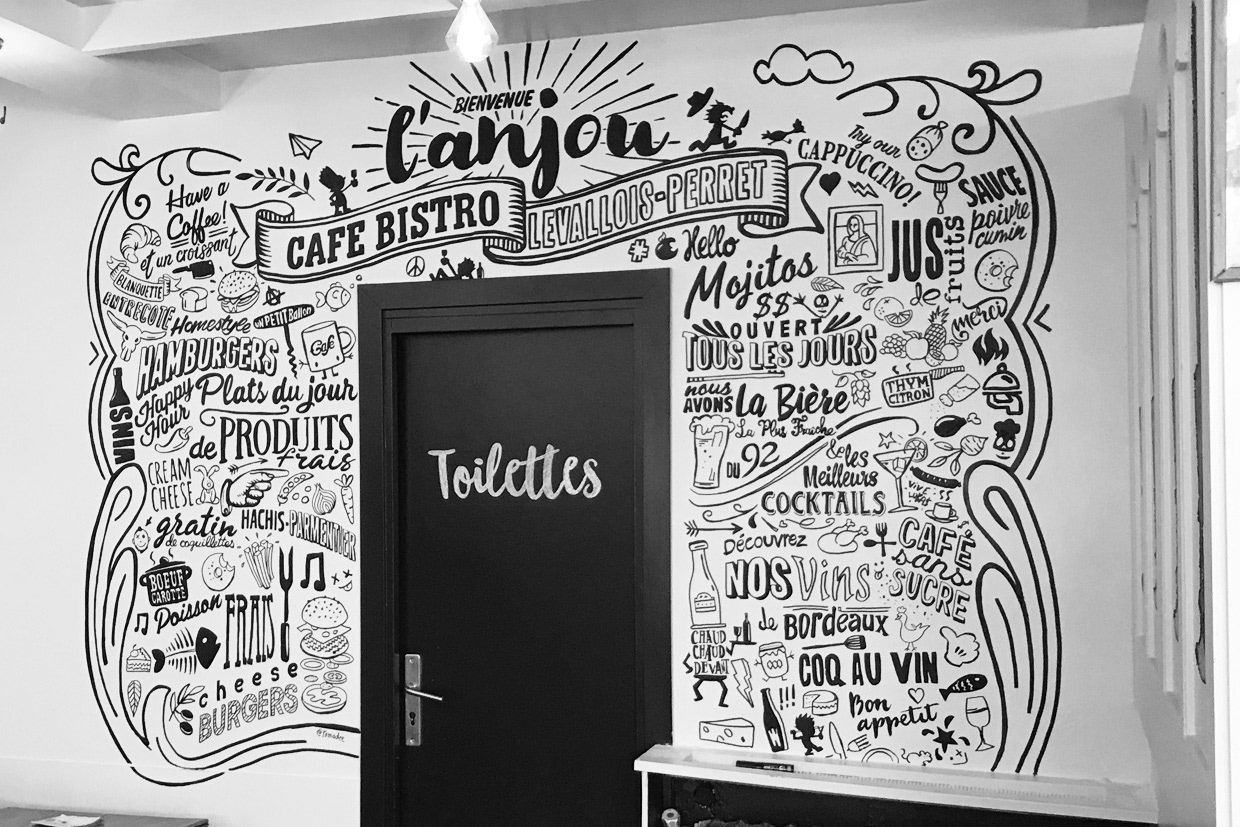 BIENVENUE
l'anjou
CAFE BISTRO
LEVALLOIS-PERRET
Have a
Coffee!
et un croissant
BLANQUETTE
ENTRECOTE
Homestyle
UN PETIT Ballon
Cafe
HAMBURGERS
VINS
Happy
Hour
Plats du jour
de PRODUITS
frais
CREAM
CHEESE
gratin
de coquillettes
HACHIS-PARMENTIER
BOEUF
CAROTTE
Poisson
FRAIS
cheese
BURGERS
Toilettes
Try our
CAPPUCCINO!
SAUCE
poivre
cumin
# Hello
Mojitos
$$
JUS
de
fruits
merci
OUVERT
TOUS LES JOURS
nous
AVONS
La Bière
La Plus Fraîche
DU 92
THYM
CITRON
& les
Meilleurs
COCKTAILS
Découvrez
NOS Vins
de Bordeaux
CAFÉ
sans
SUCRE
CHAUD
CHAUD
DEVANT
COQ AU VIN
!!!
Bon
appetit